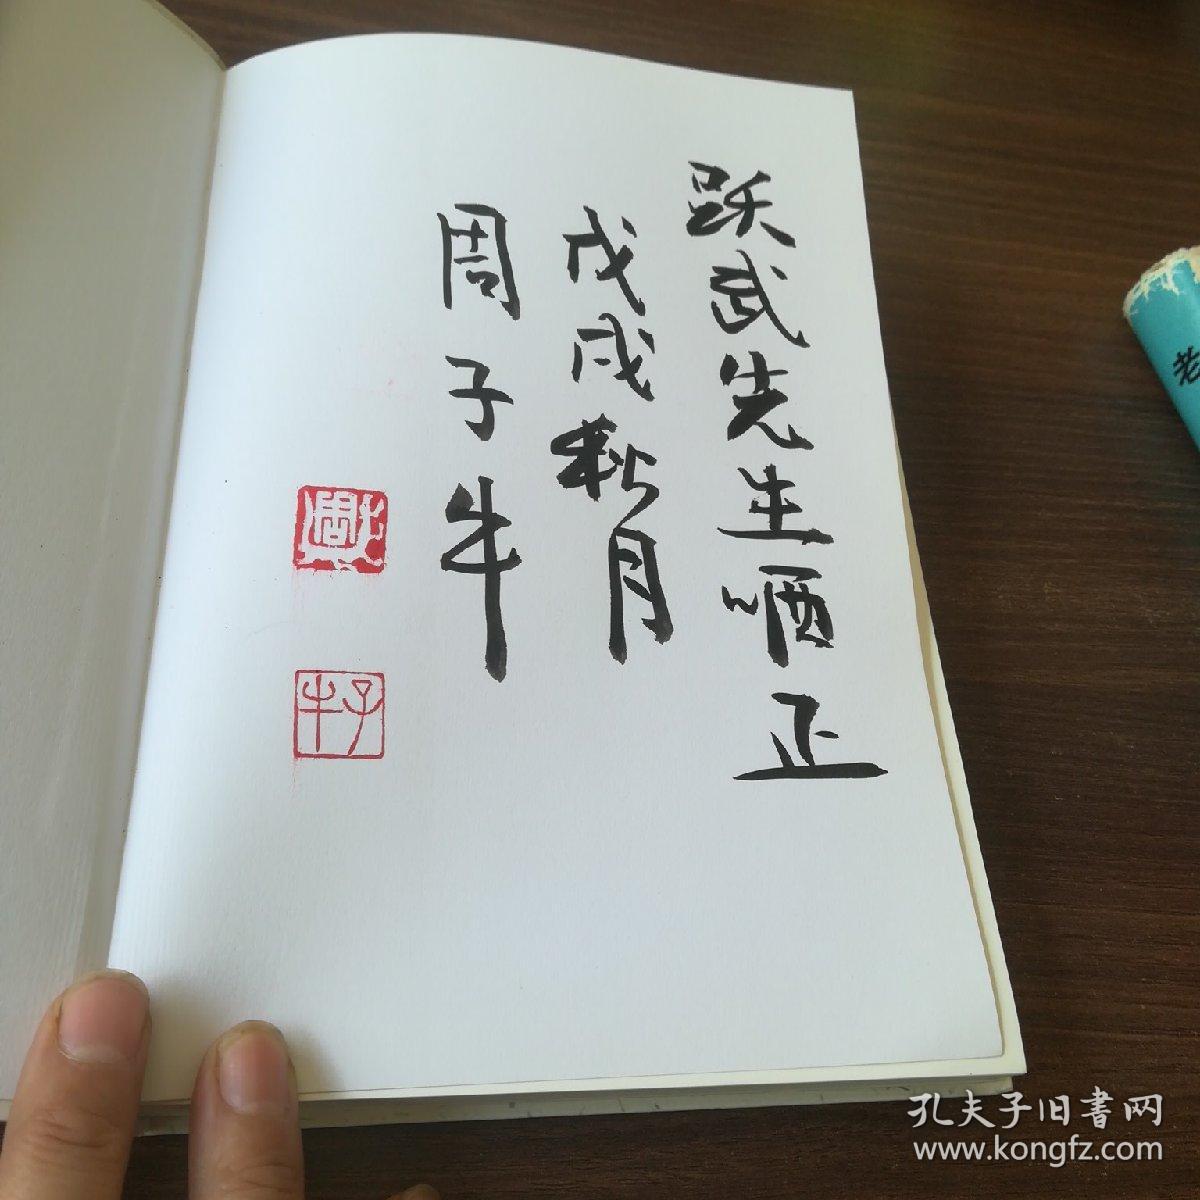 跃武先生哂正
戊戌秋月
周子牛
子牛
老
孔夫子旧書网
www.kongfz.com